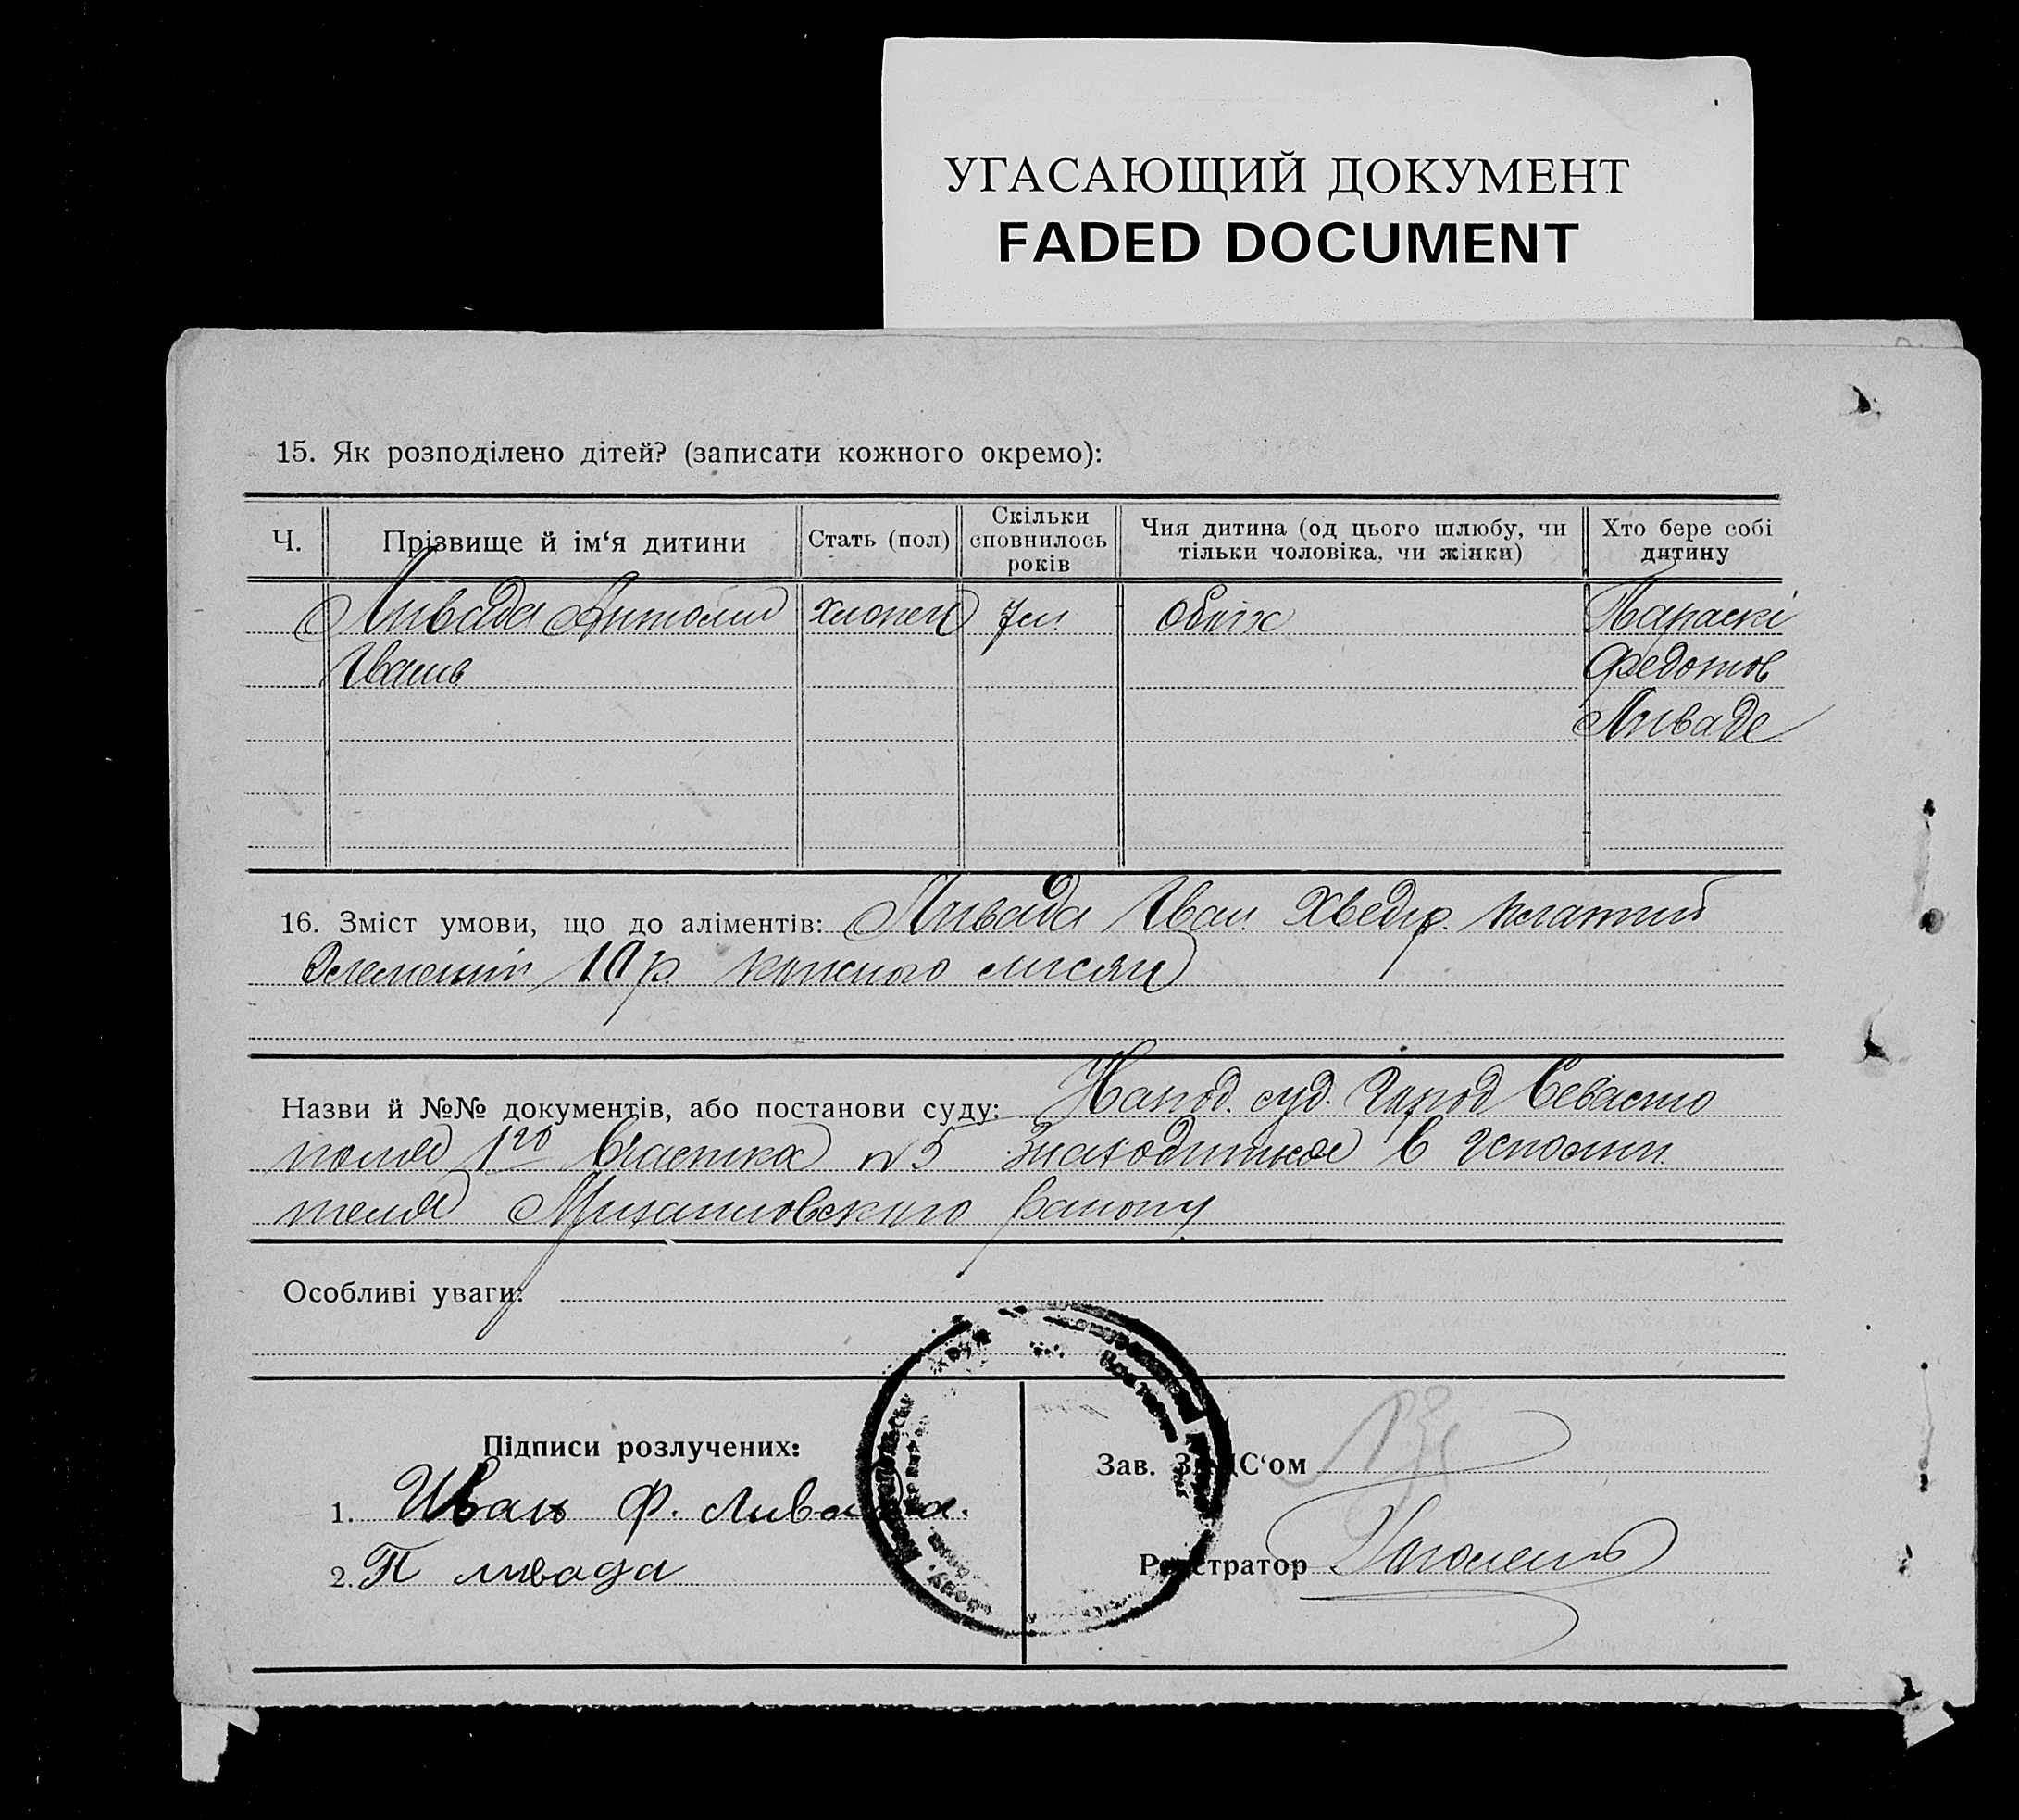 УГАСАЮЩИЙ ДОКУМЕНТ
FADED DOCUMENT
15. Як розподілено дітей? (записати кожного окремо):
Ч. Прізвище й ім‘я дитини Стать (пол) Скільки сповнилось років Чия дитина (од цього шлюбу, чи тільки чоловіка, чи жінки) Хто бере собі дитину
Ливада Антолий хлопец 7 л. Обоіх Параскі
Іванів Федотов
Ливаде
16. Зміст умови, що до аліментів: Ливада Іван Хведір. платит
10 р. кожного місяця
Назви й №№ документів, або постанови суду: Народ. суд. Город Севасто
поля 1го Участка №5 знаходитися в
теля Михайловского району
Особливі уваги:
Підписи розлучених:
1. Иван Ф. Ливада.
2. П ливада
Зав. ЗАГС‘ом
Реєстратор